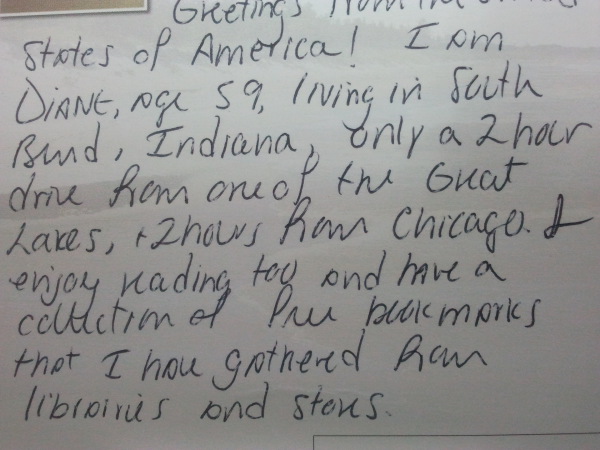 Greetings from the United
States of America! I am
DIANE, age 59, living in South
Bend, Indiana, only a 2 hour
drive from one of the Great
Lakes, + 2 hours from Chicago. I
enjoy reading too and have a
collection of free bookmarks
that I have gathered from
libraries and stores.